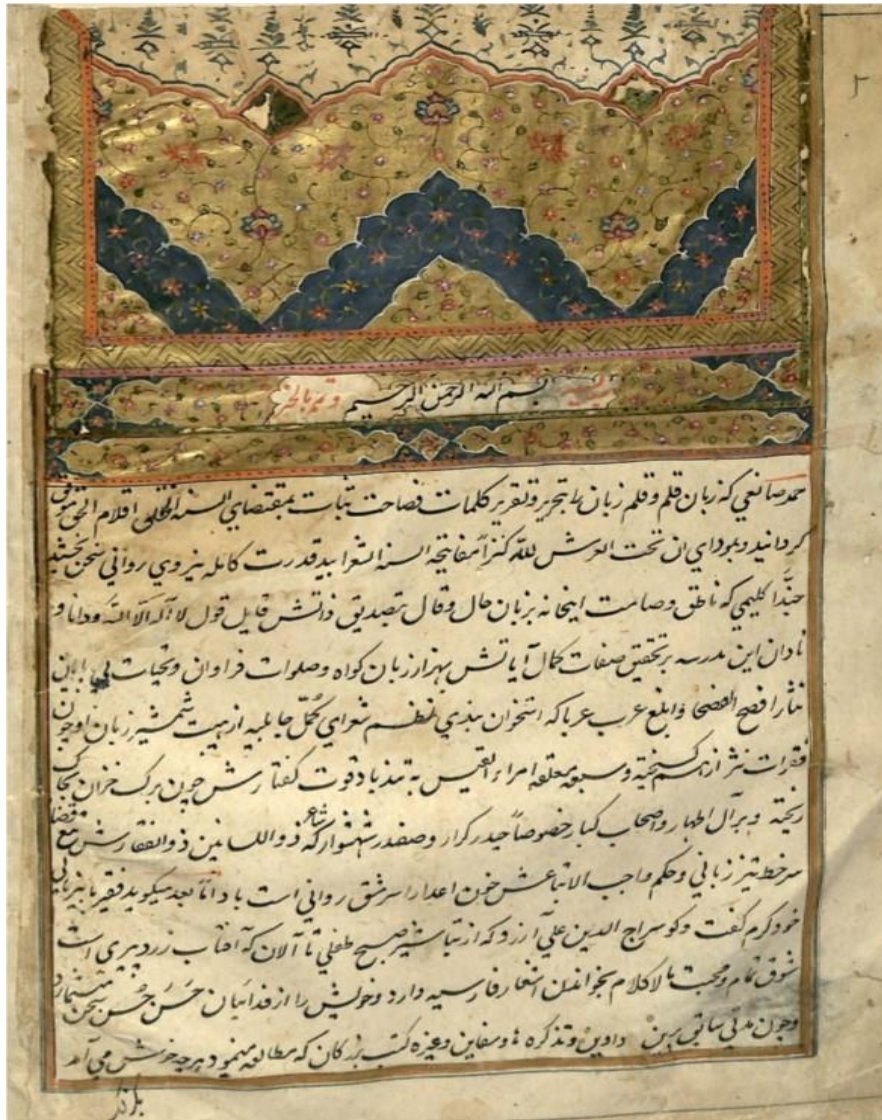 ۲
بسم الله الرحمن الرحیم وتمم بالخیر
حمد صانعی که زبان قلم و قلم زبان را بتحریر و تقریر کلمات فصاحت بمقتضای السنة الخلق اقلام الحق
کردانید و بمودای ان تحت العرش لله کنزاً مفاتیحه السنة الشعرا بید قدرت کامله نیروی روانی سخن بخشید
حبّذا کلیمی که ناطق و صامت اینجا نه بزبان حال و قال بتصدیق ذاتش قایل قول لا اله الا الله و دانا و
نادان این مدرسه بر تحقیق صفات کمال آیاتش بهزار زبان کواه و صلوات فراوان و تحیات بی پایان
نثار افصح الفصحا و ابلغ عرب عربا که استخوان بندی نظم شعرای کُمّل جاهلیه از هیبت شمشیر زبان او چون
فقرات نثر از هم کسیخته و سبعه معلقه امراء القیس به تندباد قوت کفتارش چون برک خزان بخاک
ریخته و بر آل اطهار و اصحاب کبار خصوصاً حیدر کرار و صفدر شهسوار که شاعر ذو اللسانین ذو الفقارش مع قضا
سرخط تیز زبانی و حکم واجب الاتباعش خون اعدا را سرمشق روانی است باد اما بعد میکوید فقیر
خود کرم کفت و کو سراج الدین علی آرزو که از تباشیر صبح طفلی تا الان که آفتاب زرد پیری است
شوق تمام و محبت لا کلام بخواندن اشعار فارسیه دارد و خویش را از فدائیان حَسَن حُسن سخن میشمارد
و چون مدتی سابق برین دواوین و تذکرهٔ و سفاین و غیره کتب بزرکان که مطالعه مینمود هرچه خوش می آمد